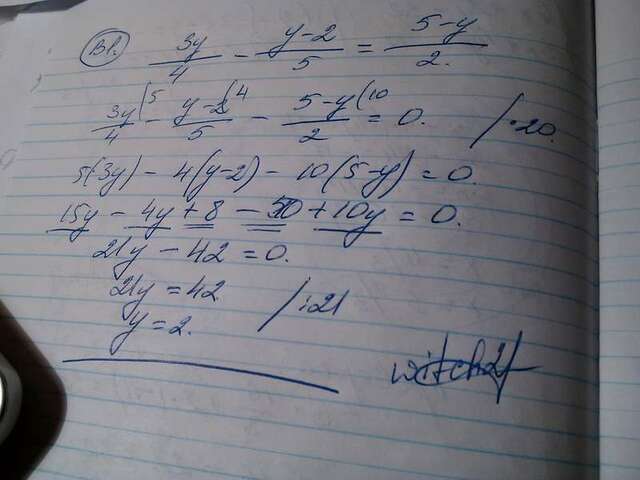 B1. 3y/4 - y-2/5 = 5-y/2.
3y/4 (5 - y-2/5 (4 - 5-y/2 (10 = 0. /·20.
5(3y) - 4(y-2) - 10(5-y) = 0.
15y - 4y + 8 - 50 + 10y = 0.
21y - 42 = 0.
21y = 42 /:21
y = 2.
witch21